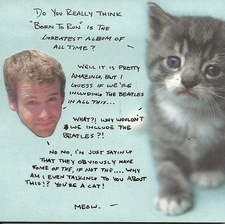 DO YOU REALLY THINK
"BORN TO RUN" IS THE
GREATEST ALBUM OF
ALL TIME?
WELL IT IS PRETTY
AMAZING, BUT I
GUESS IF WE'RE
INCLUDING THE BEATLES
IN ALL THIS...
WHAT?! WHY WOULDN'T
WE INCLUDE THE
BEATLES?!
NO NO, I'M JUST SAYING
THAT THEY OBVIOUSLY HAVE
SOME OF THE, IF NOT THE.... WHY
AM I EVEN TALKING TO YOU ABOUT
THIS!? YOU'RE A CAT!
MEOW.